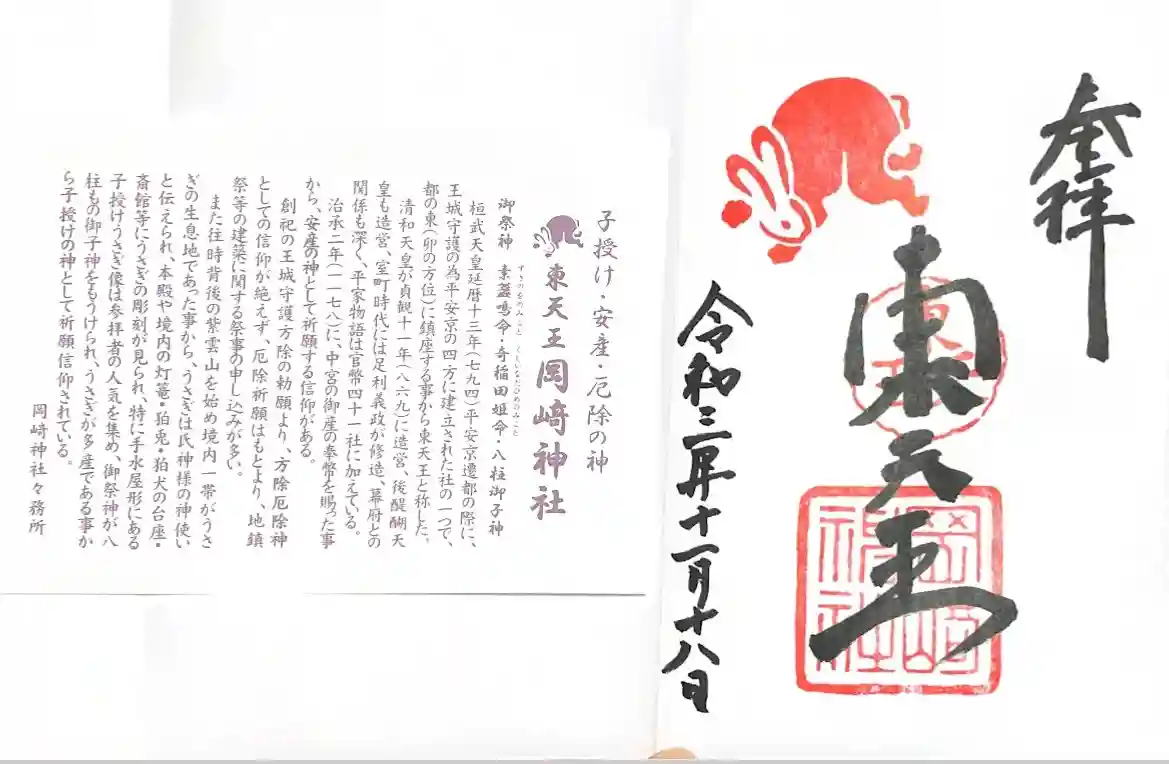 奉拝
東天王
岡崎神社
令和三年十一月十八日
子授け・安産・厄除の神
東天王 岡崎神社
御祭神 素盞嗚命・奇稲田姫命・八柱御子神
すさのをのみこと くしいなだひめのみこと
桓武天皇延暦十三年(七九四)平安京遷都の際に、
王城守護の為平安京の四方に建立された社の一つで、
都の東(卯の方位)に鎮座する事から東天王と称した。
清和天皇が貞観十一年(八六九)に造営、後醍醐天
皇も造営、室町時代には足利義政が修造、幕府との
関係も深く、平家物語は官幣四十一社に加えている。
治承二年(一一七八)に、中宮の御産の奉幣を賜った事
から、安産の神として祈願する信仰がある。
創祀の王城守護方除の勅願より、方除厄除神
としての信仰が絶えず、厄除祈願はもとより、地鎮
祭等の建築に関する祭事の申し込みが多い。
また往時背後の紫雲山を始め境内一帯がうさ
ぎの生息地であった事から、うさぎは氏神様の神使い
と伝えられ、本殿や境内の灯篭・狛兎・狛犬の台座・
斎館等にうさぎの彫刻が見られ、特に手水屋形にある
子授けうさぎ像は参拝者の人気を集め、御祭神が八
柱もの御子神をもうけられ、うさぎが多産である事か
ら子授けの神として祈願信仰されている。
岡崎神社々務所